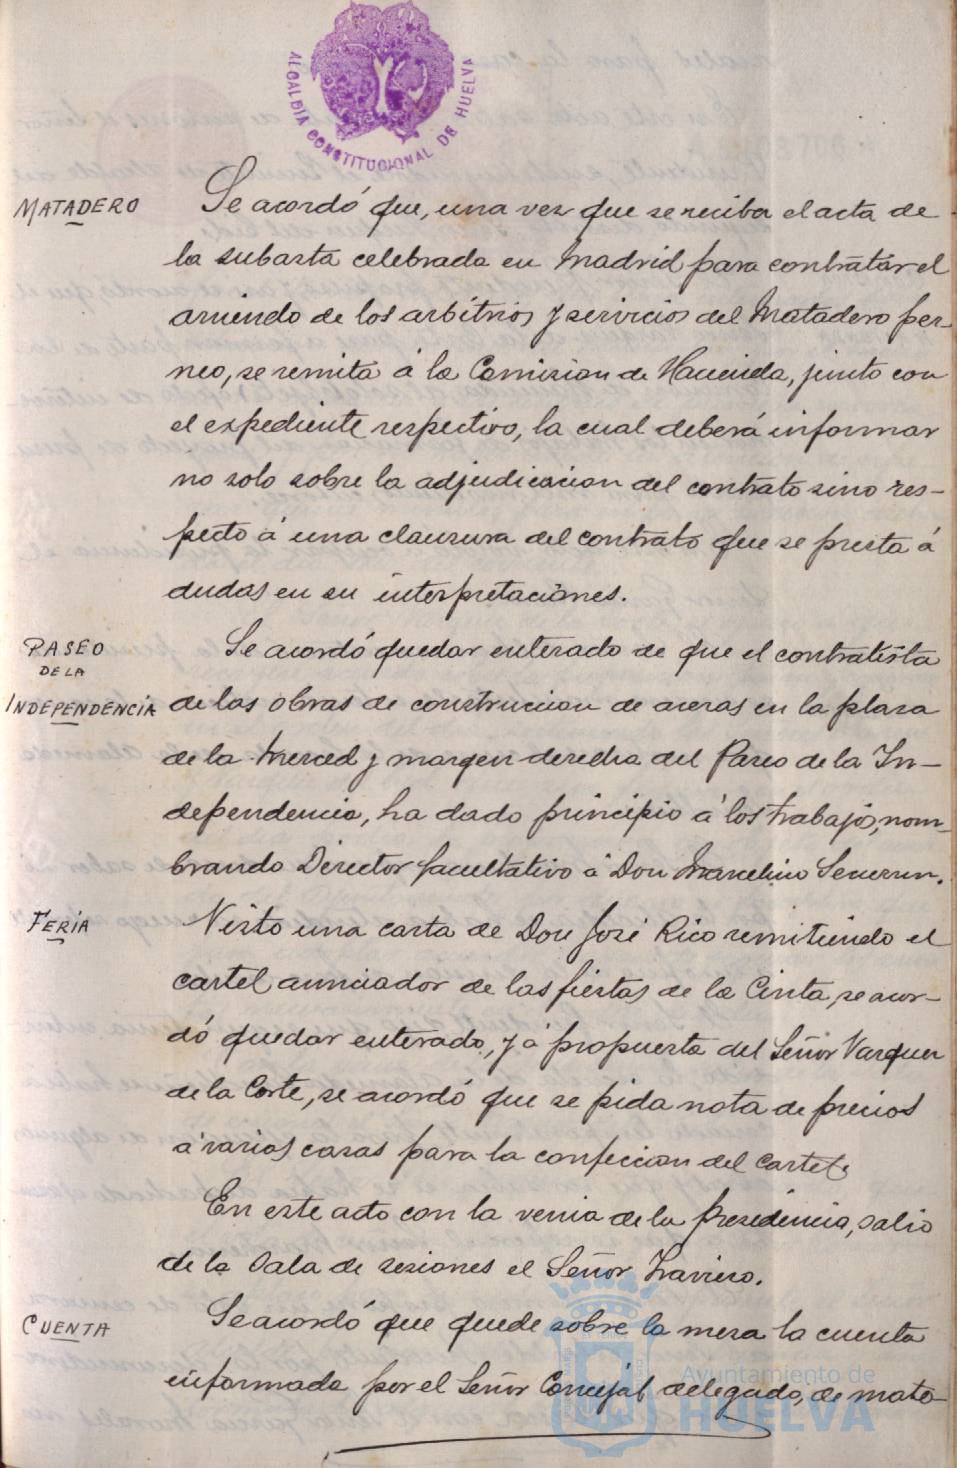 ALCALDIA CONSTITUCIONAL DE HUELVA
MATADERO
Se acordó que, una vez que se reciba el acta de
la subasta celebrada en Madrid para contratar el
arriendo de los arbitrios y servicios del Matadero per-
neo, se remita á la Comision de Hacienda, junto con
el expediente respectivo, la cual deberá informar
no solo sobre la adjudicacion del contrato sino res-
pecto á una clausura del contrato que se presta á
dudas en su interpretaciones.
PASEO
DE LA
INDEPENDENCIA
Se acordó quedar enterado de que el contratista
de las obras de construccion de aceras en la plaza
de la Merced y margen derecha del Paseo de la In-
dependencia, ha dado principio á los trabajos, nom-
brando Director facultativo á Don Marcelino
FERIA
Visto una carta de Don José Rico remitiendo el
cartel anunciador de las fiestas de la Cinta, se acor-
dó quedar enterado, y á propuesta del Señor Vazquez
de la Corte, se acordó que se pida nota de precios
á varios casas para la confeccion del cartel.
En este acto con la venia de la Presidencia, salio
de la Sala de sesiones el Señor
CUENTA
Se acordó que quede sobre la mesa la cuenta
informada por el Señor Concejal delegado, de mata-
Ayuntamiento de
HUELVA